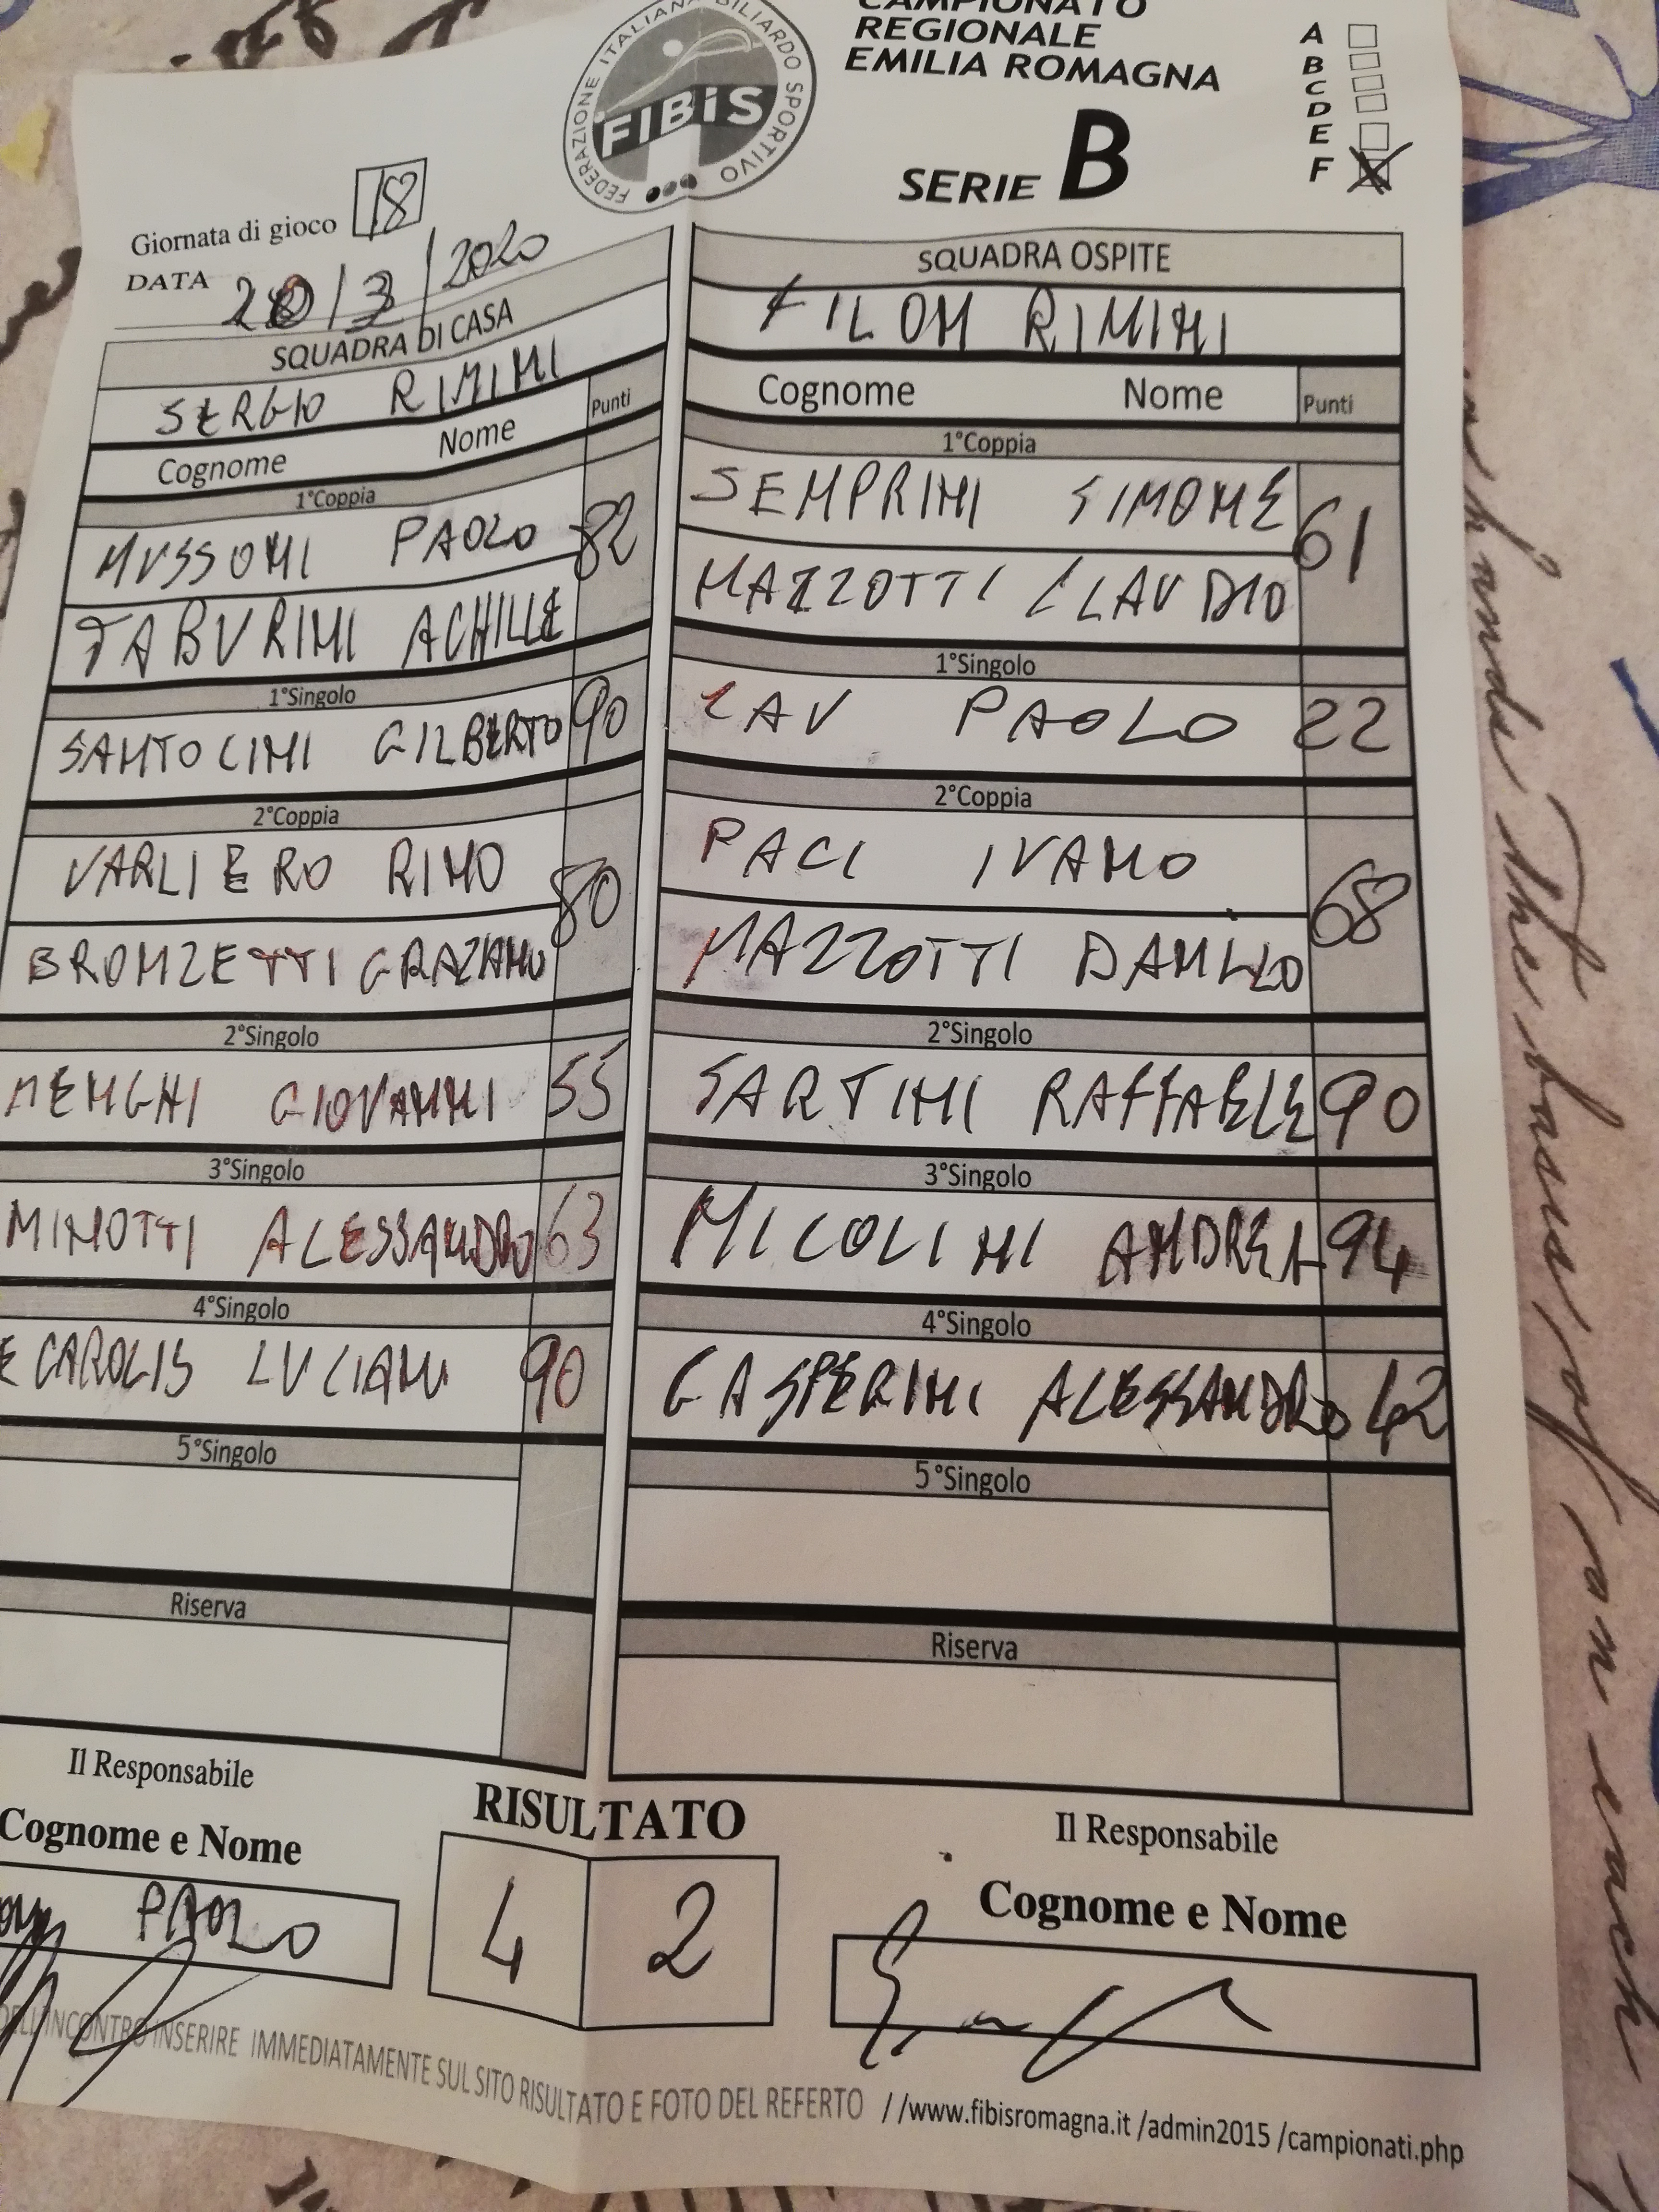 FEDERAZIONE ITALIANA BILIARDO SPORTIVO
FIBiS
CAMPIONATO
REGIONALE
EMILIA ROMAGNA
SERIE B
A
B
C
D
E
F
Giornata di gioco 18
DATA 20/3/2020
SQUADRA DI CASA
SERGIO RIMINI
Cognome Nome Punti
1°Coppia
MUSSONI PAOLO 82
TABURINI ACHILLE
1°Singolo
SANTOLINI GILBERTO 90
2°Coppia
VARLIERO RINO 80
BRONZETTI GRAZIANO
2°Singolo
MENGHI GIOVANNI 55
3°Singolo
MINOTTI ALESSANDRO 63
4°Singolo
E CAROLIS LUCIANO 90
5°Singolo
Riserva
Il Responsabile
Cognome e Nome
PAOLO
SQUADRA OSPITE
FILON RIMINI
Cognome Nome Punti
1°Coppia
SEMPRINI SIMONE 61
MAZZOTTI CLAUDIO
1°Singolo
CAV PAOLO 22
2°Coppia
PACI IVANO 68
MAZZOTTI DANILO
2°Singolo
SARTINI RAFFAELE 90
3°Singolo
NICOLINI ANDREA 94
4°Singolo
GASPERINI ALESSANDRO 42
5°Singolo
Riserva
Il Responsabile
Cognome e Nome
RISULTATO
4 2
DELL'INCONTRO INSERIRE IMMEDIATAMENTE SUL SITO RISULTATO E FOTO DEL REFERTO //www.fibisromagna.it /admin2015 /campionati.php
hands The basis of